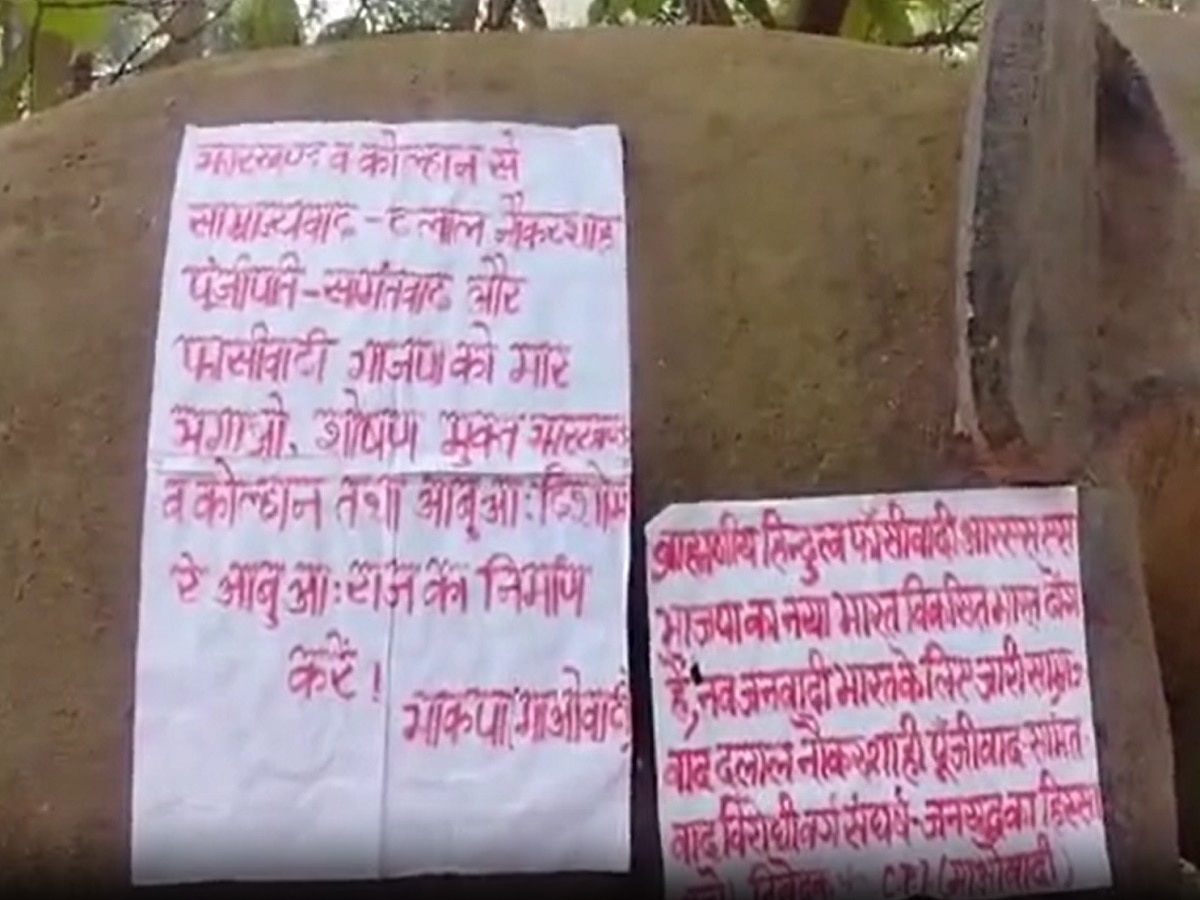 झारखण्ड व कोल्हान से
साम्राज्यवाद - दलाल नौकरशाह
पूंजीपति - सामंतवाद और
फासीवादी भाजपा को मार
भगाओ, शोषण मुक्त झारखण्ड
व कोल्हान तथा आबुआ: दिशोम
रे आबुआ: राज का निर्माण
करें !
भाकपा (माओवादी)
ब्राह्मणीय हिन्दुत्व फॉसीवादी आरएसएस
भाजपा का नया भारत विकसित भारत
हैं, नव जनवादी भारत के लिए जारी साम्रज्
वाद दलाल नौकरशाही पूँजीवाद सामंत
वाद विरोधी वर्ग संघर्ष - जनयुद्ध का हिस्सा
(माओवादी)